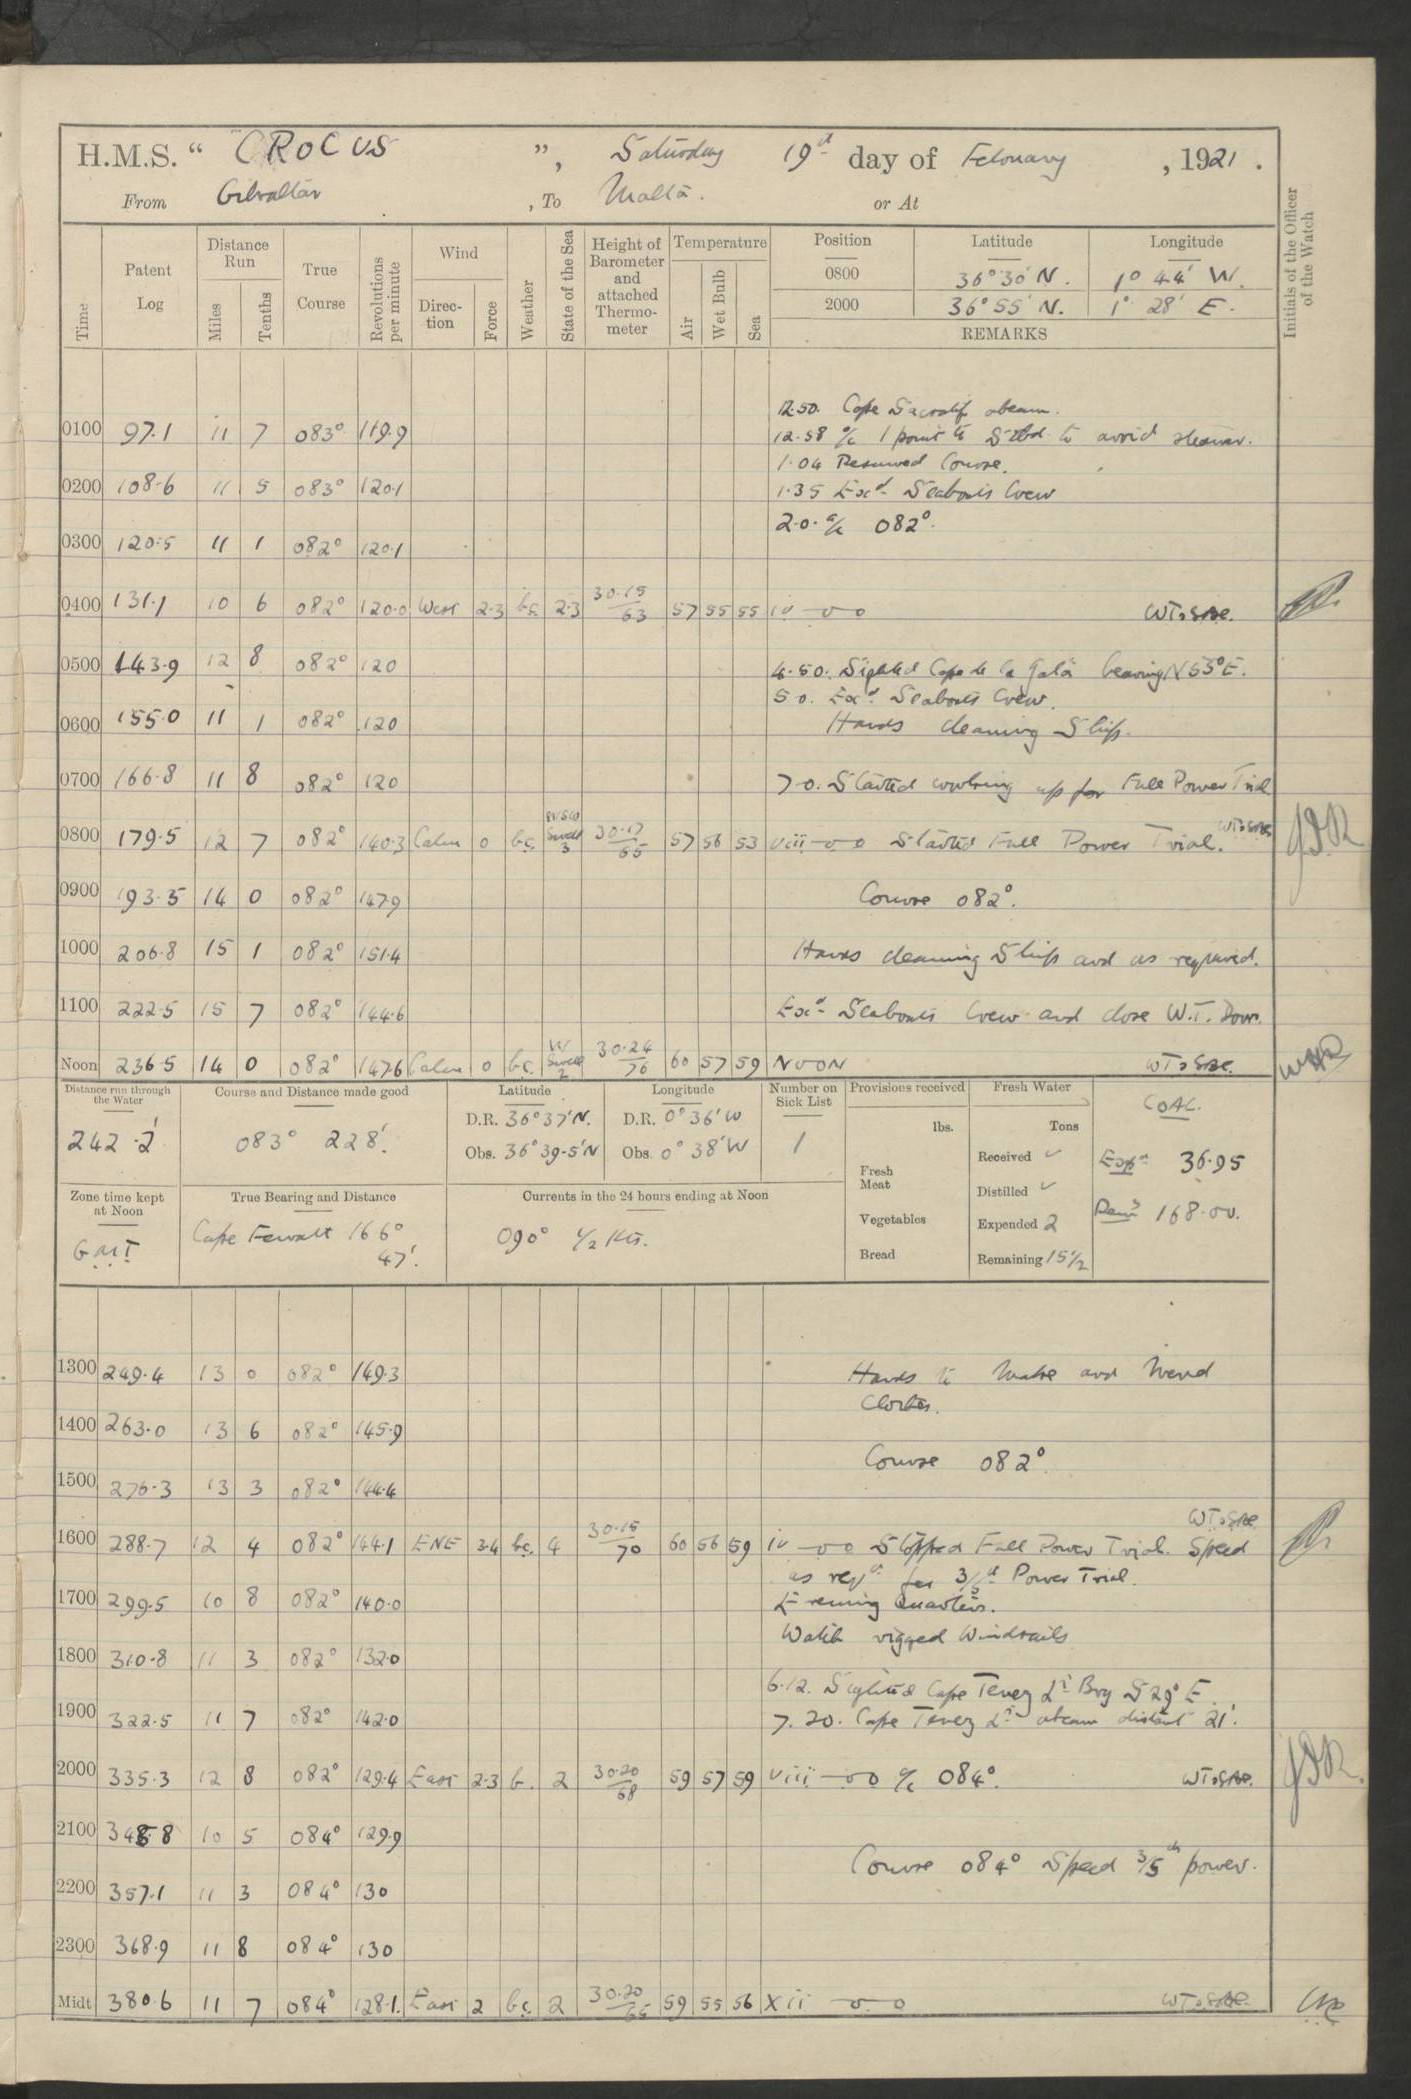 H.M.S. “ CROCUS ”, Saturday 19th day of February, 1921.
From Gibraltar, To Malta. or At
Initials of the Officer of the Watch
Time Patent Log Distance Run Miles Tenths True Course Revolutions per minute Wind Direction Force Weather State of the Sea Height of Barometer and attached Thermometer Temperature Air Wet Bulb Sea
Position Latitude Longitude
0800 36° 30' N. 1° 44' W.
2000 36° 55' N. 1° 28' E.
REMARKS
12.50. Cape Sacratif abeam.
0100 97.1 11 7 083° 119.9 12.58 a/c 1 point to Stbd to avoid steamer.
1.04 Resumed Course.
0200 108.6 11 5 083° 120.1 1.35 Exd. Seaboats Crew
2.0. a/c 082°.
0300 120.5 11 1 082° 120.1
0400 131.1 10 6 082° 120.0 West 2.3 bc. 2.3 30.15/63 57 55 55 iv—o—o WT & SAE.
0500 143.9 12 8 082° 120 4.50. Sighted Cape de la Gata bearing N 53° E.
5.0. Exd. Seaboats Crew.
0600 155.0 11 1 082° 120 Hands cleaning Ship.
0700 166.8 11 8 082° 120 7.0. Started working up for Full Power Trial
0800 179.5 12 7 082° 140.3 Calm 0 bc. Swell 3 30.17/65 57 56 53 viii—o—o Started Full Power Trial. WT & SAE JDR
0900 193.5 14 0 082° 147.9 Course 082°.
1000 206.8 15 1 082° 151.4 Hands cleaning Ship and as required.
1100 222.5 15 7 082° 144.6 Exd. Seaboats Crew and close W.T. Doors.
Noon 236.5 14 0 082° 147.6 Calm 0 bc. W Swell 2 30.24/70 60 57 59 NOON WT & SAE.
Distance run through the Water Course and Distance made good Latitude Longitude Number on Sick List Provisions received Fresh Water COAL.
242.2' 083° 228'. D.R. 36° 37' N. D.R. 0° 36' W 1 lbs. Tons
Obs. 36° 39.5' N Obs. 0° 38' W Received ✓ Expd 36.95
Fresh Meat Distilled ✓
Zone time kept at Noon True Bearing and Distance Currents in the 24 hours ending at Noon Vegetables Expended 2 Remg 168.00.
G.M.T Cape Fewatt 166° 47'. 090° 1/2 Kts. Bread Remaining 15 1/2
1300 249.4 13 0 082° 149.3 Hands to Make and Mend
Clothes.
1400 263.0 13 6 082° 145.9
Course 082°
1500 276.3 13 3 082° 144.4
WT & SAE
1600 288.7 12 4 082° 144.1 ENE 3.4 bc. 4 30.15/70 60 56 59 iv—o—o Stopped Full Power Trial. Speed
as reqd. for 3/5th Power Trial.
1700 299.5 10 8 082° 140.0 Evening Quarters.
Watch rigged Windsails
1800 310.8 11 3 082° 132.0
6.12. Sighted Cape Tenez Lt Brg S 29° E.
1900 322.5 11 7 082° 142.0 7.20. Cape Tenez Lt. abeam distant 21'.
2000 335.3 12 8 082° 129.4 East 2.3 b. 2 30.20/68 59 57 59 viii—o—o a/c 084°. WT & SAE. JDR.
2100 345.8 10 5 084° 129.9
Course 084° Speed 3/5th power.
2200 357.1 11 3 084° 130
2300 368.9 11 8 084° 130
Midt 380.6 11 7 084° 128.1. East 2 bc. 2 30.20/65 59 55 56 Xii—o—o WT & SAE.